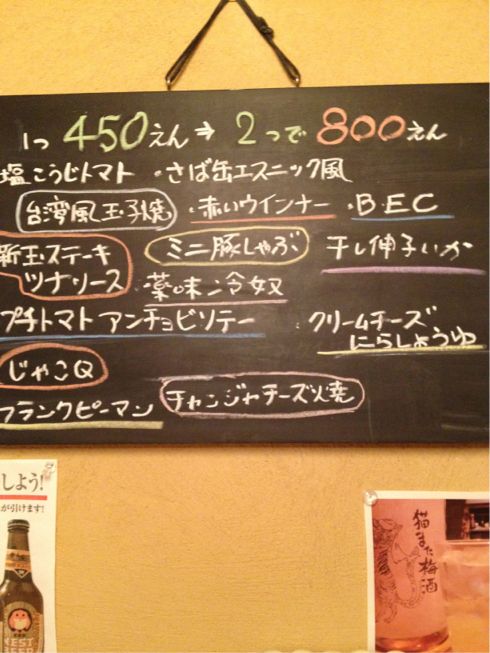 1つ 450えん→ 2つで 800えん
塩こうじトマト ・さば缶エスニック風
台湾風玉子焼 ・赤いウインナー ・BEC
新玉ステーキ ミニ豚しゃぶ 干し伸子いか
ツナソース ・薬味冷奴
プチトマトアンチョビソテー ・クリームチーズ
にらしょうゆ
じゃこQ
フランクピーマン チャンジャチーズ火焼
しよう!
が引けます!
猫また梅酒
NEST
BEER